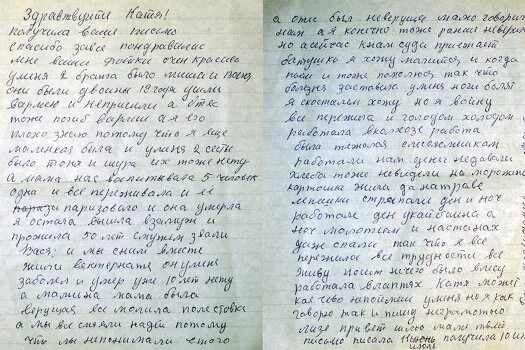 Здравствуите Катя!
получила ваше писмо
спасибо завсе пондравилис
мне ваши фотки очен красиво
уменя 2 брата было миша и Ваня
они были двоины 18 года ушли
вармею и непришли а отес
тоже погиб вармии а я его
плохо знаю потому что я еще
маленкая была и уменя 2 сестры
было тоня и шура их тоже нету
а мама нас воспитывала 5 человек
одна и все переживала и ее
паризовало и она умерла
я остала вышла взамуж и
прожила 50 лет смужем звали
Вася и мы сним вместе
жили винтернате он уменя
заболел и умер уже 10 лет нету
а мамина мама была
верущая все молила
а мы все смяли надей потому
что мы непонимали етого
а отес был неверуща мало говорил
нам а я конечно тоже ранше неверила
но асеичас кнам суда приезжает
батушко я хожу малится и когда
пыем и тоже помолюся так что
болезня заставила уменя ноги болят
я скостылем хожу но я войну
все пережила и голодом холодом
рыботала вколхозе работа
была тежолая
работали нам денег недавали
хлеба тоже невыдели на мороженой
картошке жили да на траве
лепешки стрепали ден и ноч
работали ден укамбаина а
ноч молотим и настанах
даже спали так что я все
пережила все трудности все
живу носит ничего было влесу
работала влаптях Катя может
кае чево непоймеи уменя но я как
говорю так и пишу неграмотно
лизе привет шлю
писмо писала 11 июль получила 10